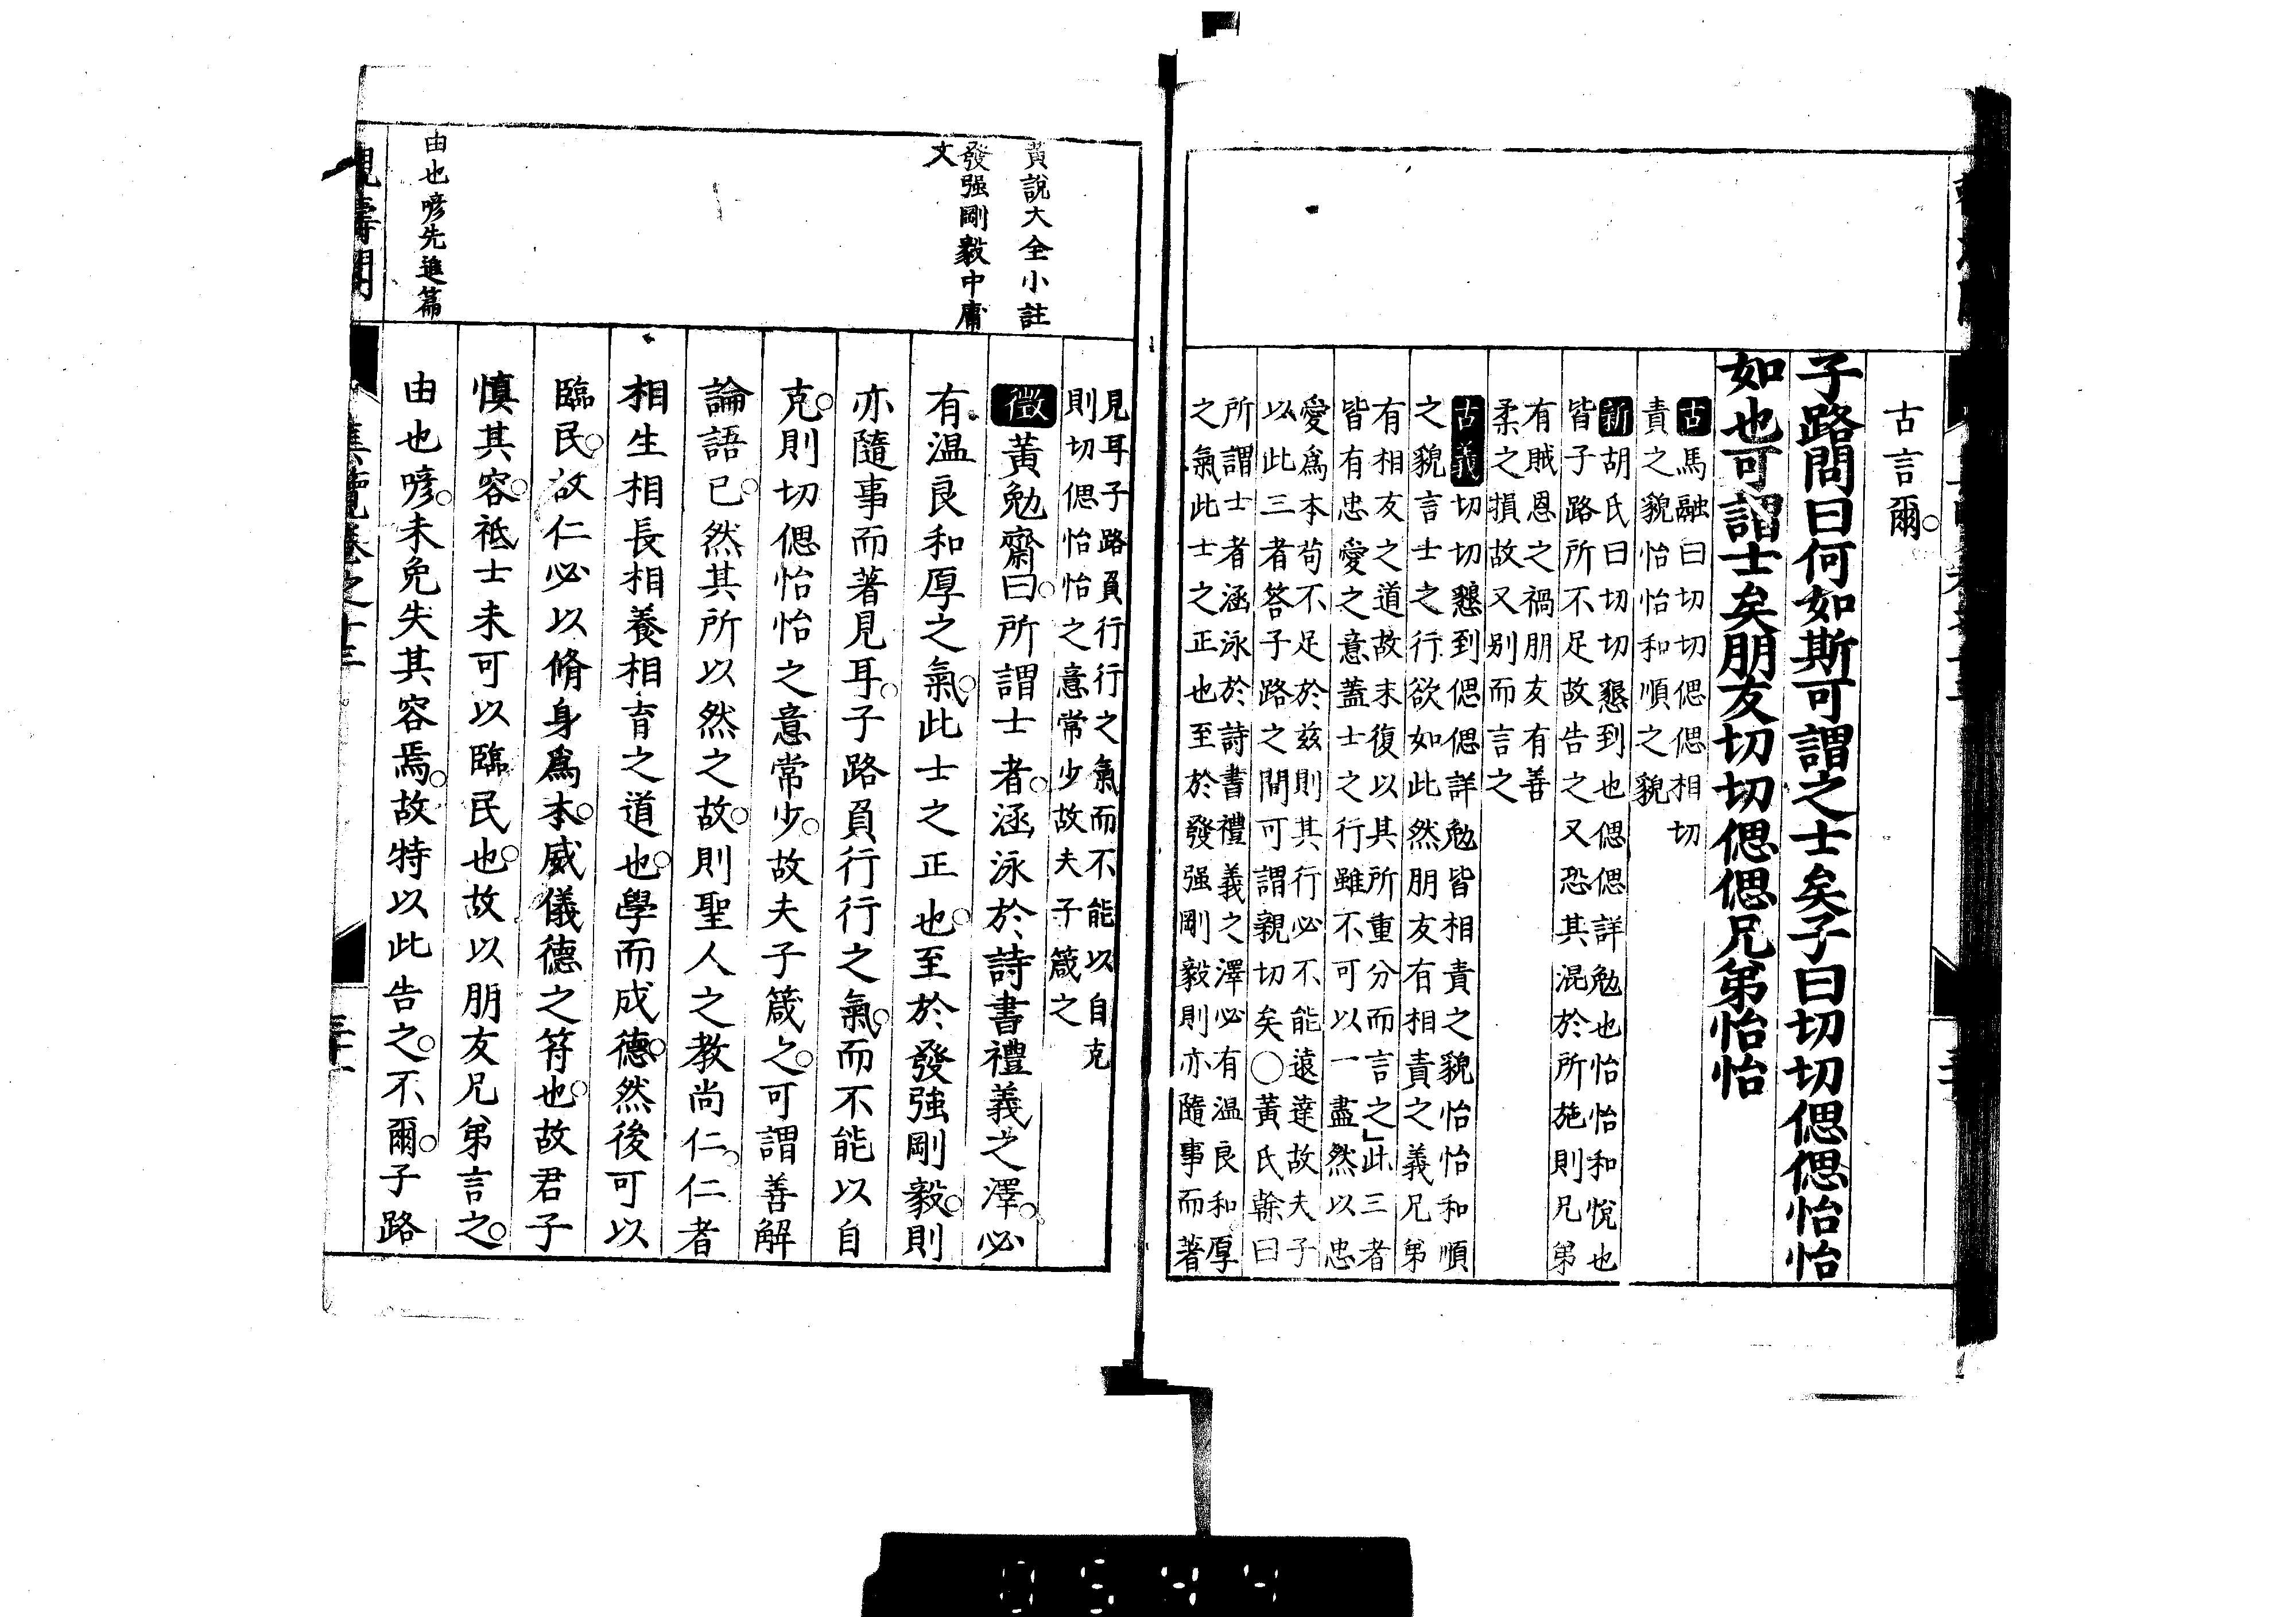 古言爾
子路問曰何如斯可謂之士矣子曰切切偲偲怡怡
如也可謂士矣朋友切切偲偲兄弟怡怡
古馬融曰切切偲偲相切
責之貌怡怡和順之貌
新胡氏曰切切懇到也偲偲詳勉也怡怡和悅也
皆子路所不足故告之又恐其混於所施則兄弟
有賊恩之禍朋友有善
柔之損故又别而言之
古義切切懇到偲偲詳勉皆相責之貌怡怡和順
之貌言士之行欲如此然朋友有相責之義兄弟
有相友之道故末復以其所重分而言之」此三者
皆有忠愛之意蓋士之行雖不可以一盡然以忠
愛爲本苟不足於兹則其行必不能遠達故夫子
以此三者答子路之問可謂親切矣○黃氏榦曰
所謂士者涵泳於詩書禮義之澤必有温良和厚
之氣此士之正也至於發强剛毅則亦隨事而著
黃說大全小註
發强剛毅中庸
文
由也喭先進篇
見耳子路負行行之氣而不能以自克
則切偲怡怡之意常少故夫子箴之
徵黃勉齋曰。所謂士者。涵泳於詩書禮義之澤。必
有温良和厚之氣。此士之正也。至於發強剛毅。則
亦隨事而著見耳。子路負行行之氣。而不能以自
克。則切偲怡怡之意常少。故夫子箴之。可謂善解
論語已。然其所以然之故。則聖人之教尚仁。仁者
相生相長相養相育之道也。學而成德。然後可以
臨民。故仁必以脩身爲本。威儀德之符也。故君子
慎其容。祗士未可以臨民也。故以朋友兄弟言之。
由也喭。未免失其容焉。故特以此告之。不爾。子路
集覽卷之十三
0544